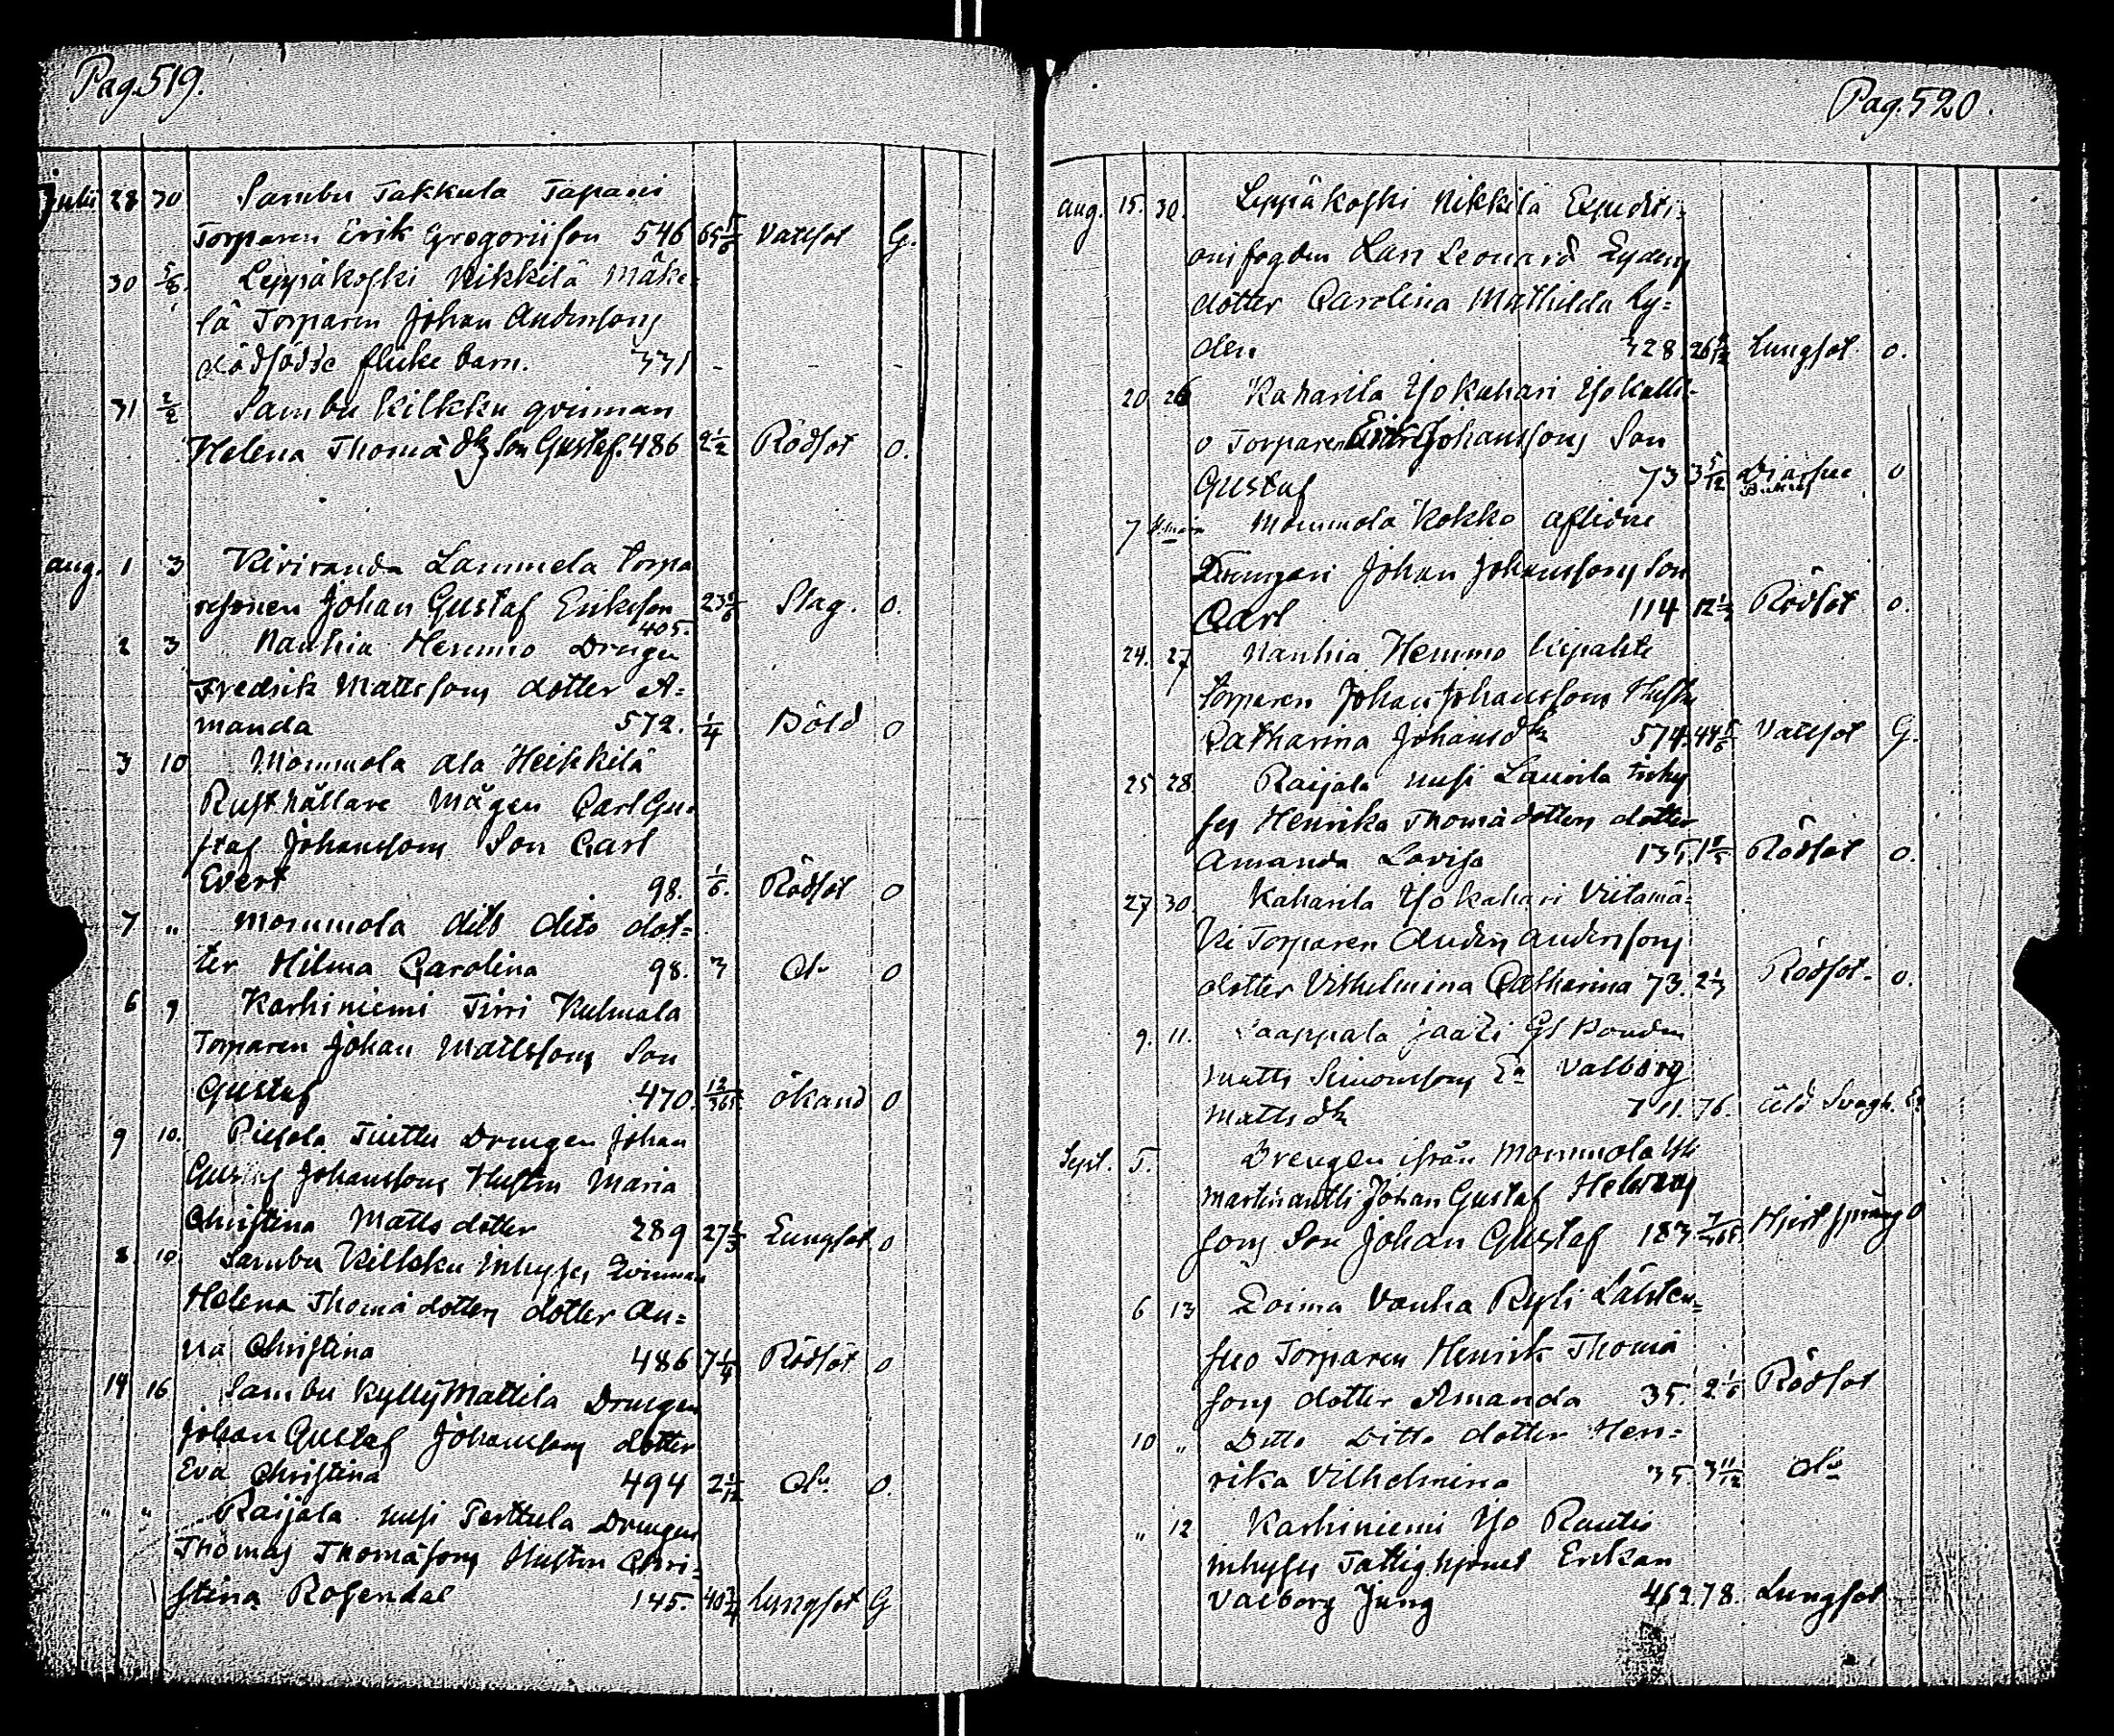 Pag. 519.
Julii 28 30 Sambu Takkula Tapani
Torparen Erik Gregoriison 546 65 5/6 Vattsot G.
30 5/8. Leppäkoski Nikkilä Mäke-
lä Torparen Johan Anderssons
dödfödde flicke barn. 331 - - -
31 2/8 Sambu Kilkku qvinnan
Helena Thomä dtrs Son Gustaf. 486 2 1/2 Rödsot o.
aug. 1 3 Kiviranda Lammela torpa
resonen Johan Gustaf Eriksson 23 1/6 Slag. o.
405.
2 3 Nanhia Hemmo Drengen
Fredrik Mattssons dotter A-
manda 572. 1/4 Böld o
3 10 Mommola Ala Heikkilä
Rusthållare Mågen Carl Gu-
staf Johanssons Son Carl
Evert 98. 1/6. Rödsot o
7 " Mommola dito dito dot-
ter Hilma Carolina 98. 3 do o
6 9 Karhiniemi Jirri Kulmala
Torparen Johan Mattssons Son
Gustaf 470. 12/365. okänd o
9 10. Piesola Tuittu Drengen Johan
Gustaf Johanssons Hustru Maria
Christina Matts dotter 289 27 1/3 Lungsot o
8. 10. Sambu Kilkku Inhyses Qvinnan
Helena Thomä dotters dotter An-
na Christina 486 7 1/4 Rödsot o
14 16 Sambu Kylly Mattila Drengen
Johan Gustaf Johanssons dotter
Eva Christina 494 2 1/12 do. o.
" " Raijala uusi Perttula Drengen
Thomas Thomäsons Hustru Chri-
stina Rosendal 145. 40 3/4 Lungsot G
Pag. 520.
aug. 15. 30. Leppäkoski Nikkilä Expediti-
onsfogden Lars Leonard Lydens
dotter Carolina Mathilda Ly-
den 328. Lungsot o.
20 26 Kaharila Yso Kahari
o Torparen Johanssons Son
Gustaf 73 3 5/12 Diarhee o
7 Mommola Kokko aflidne
Drengen Johan Johanssons Son
Carl 114 12 1/3 Rödsot o.
24. 27 Nanhia Hemmo Liepahte
torparen Johan Johanssons Hustru
Catharina Johansdtr 574. 44 5/6 Vattsot G.
25 28 Raijala uusi Laurila Inhy
ses Henrika Thomädotters dotter
Amanda Lovisa 135. Rödsot o.
27 30 Kaharila Yso kahari Viitamä-
ki Torparen Anders Anderssons
dotter Vilhelmina Catharina 73. 2 1/3 Rödsot. o.
9. 11. Jaazi Gl Bonden
Matts Simonssons Ea Valborg
Matts dtr 76. Åld Svagh.
Sept. 5. Drengen ifrån Mommola
Johan Gustaf
sons Son Johan Gustaf 183. 7/365. Hjertsprång o
6 13 Loima Vanha Ryli Lähten-
suo Torparen Henrik Thomä
sons dotter Amanda 35. 2 1/6 Rödsot
10 " Ditto Ditto dotter Hen-
rika Vilhelmina 35. 3 11/12 do
" 12 Karhiniemi Yso Rautio
inhyses Fattighjonet Enkan
Valborg Jung 462. 78. Lungsot